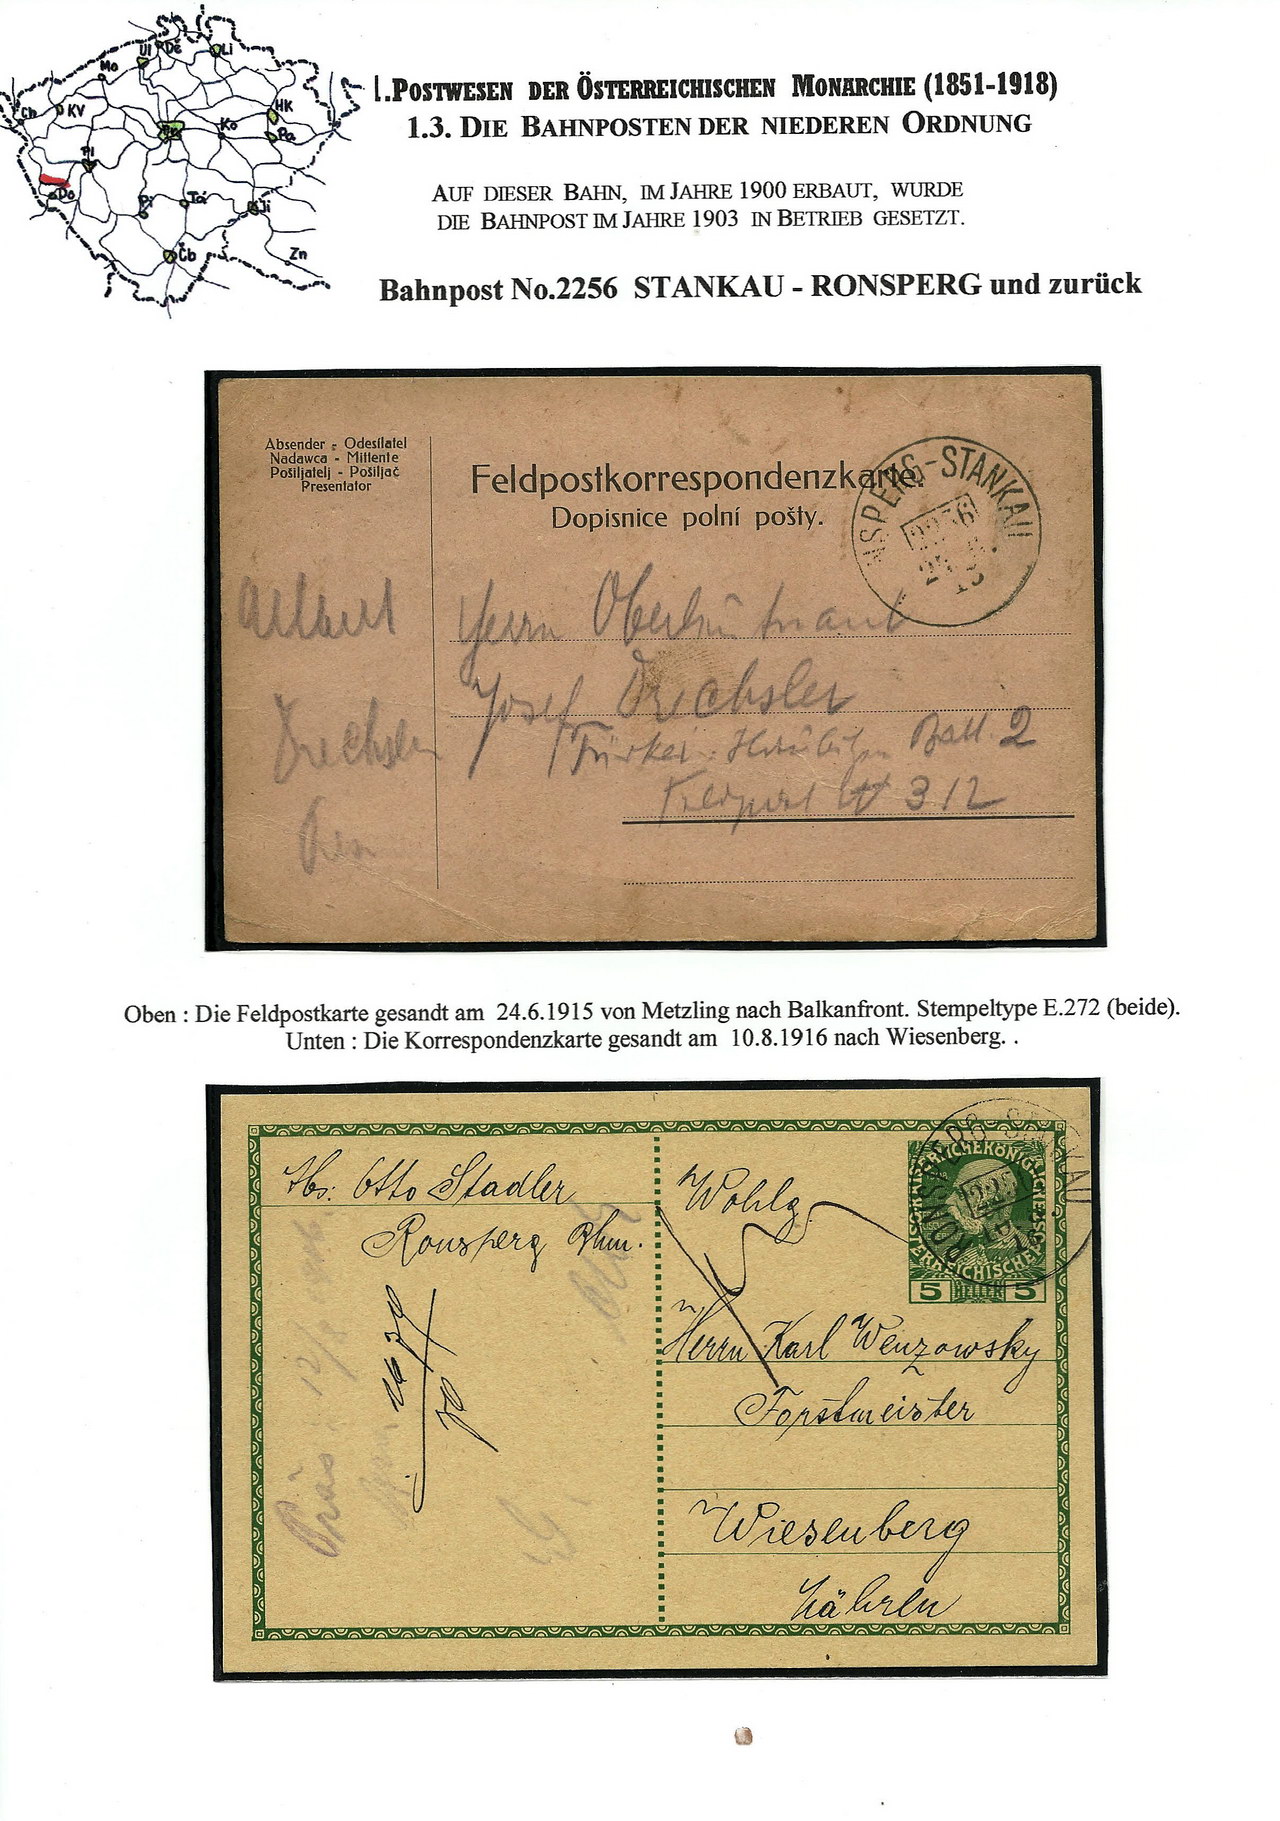 Ul
Dě
Li
Mo
Ch
KV
HK
Pr
Ko
Pa
Pl
Do
Pi
Tá
Ji
Čb
Zn
1.POSTWESEN DER ÖSTERREICHISCHEN MONARCHIE (1851-1918)
1.3. DIE BAHNPOSTEN DER NIEDEREN ORDNUNG
AUF DIESER BAHN, IM JAHRE 1900 ERBAUT, WURDE
DIE BAHNPOST IM JAHRE 1903 IN BETRIEB GESETZT.
Bahnpost No.2256 STANKAU - RONSPERG und zurück
Absender - Odesílatel
Nadawca - Mittente
Pošiljatelj - Pošiljač
Presentator
Feldpostkorrespondenzkarte.
Dopisnice polní pošty.
NSPERG-STANKAU
2256
Albert
Drechsler
Herrn Oberleutnant
Josef Drechsler
Batt. 2
Feldpost 312
Oben : Die Feldpostkarte gesandt am 24.6.1915 von Metzling nach Balkanfront. Stempeltype E.272 (beide).
Unten : Die Korrespondenzkarte gesandt am 10.8.1916 nach Wiesenberg. .
RONSPERG-STANKAU
5 HELLER 5
Otto Stadler
Ronsperg Bhm.
Wohlg.
Herrn Karl Wenzowsky
Forstmeister
Wiesenberg
Mähren